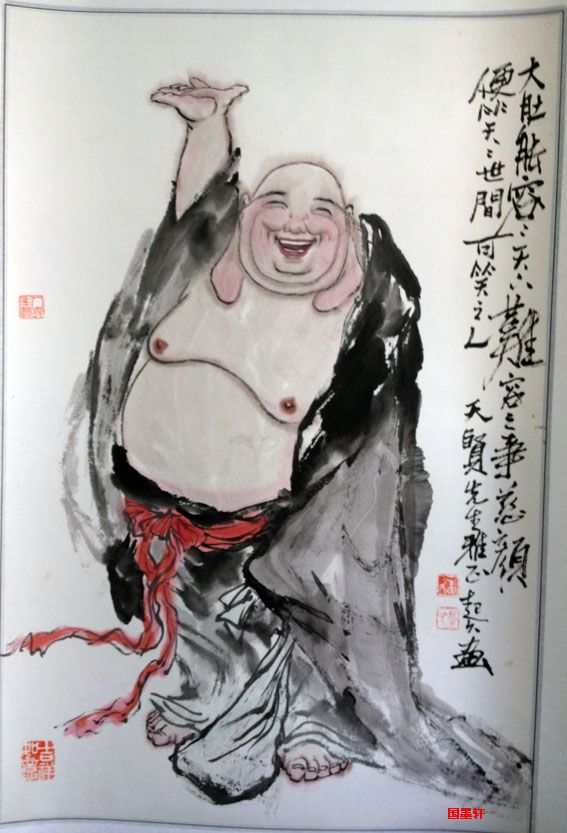 大肚能容〻天下難容之事慈顏
便笑〻世間可笑之人 天賢先生雅正 画
吉祥如意
国墨轩